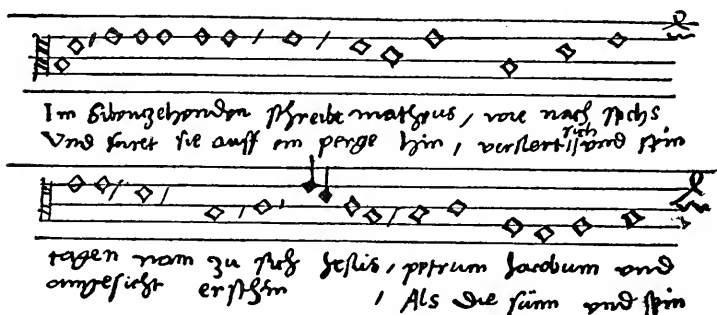 Im Sibenzehenden schreibt matheus, wie nach sechs
Vnd furet sie auff ein perge hin, verclert sich vnd sein
tagen nam zu sich Jesus, petrum Jacobum vnd
angesicht erschin, Als die sunn vnd sein